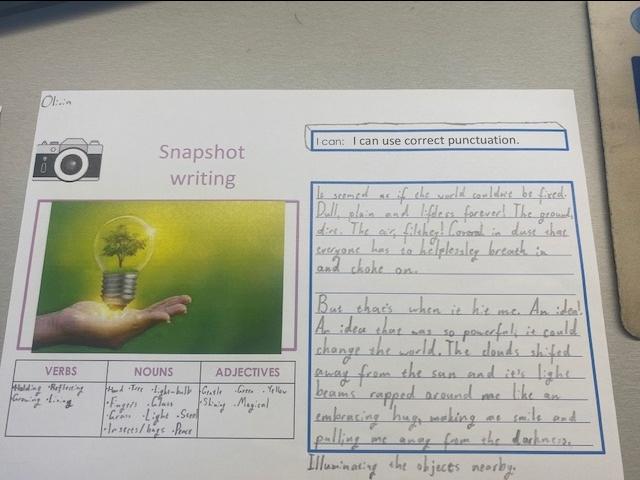 Snapshot
writing
I can: I can use correct punctuation.
It seemed as if the world couldn't be fixed.
Dull, plain and lifeless forever! The ground,
dirt. The air, filthey! Coverd in dust that
everyone has to helplessley breath in
and choke on.
But that's when it hit me. An idea!
An idea that was so powerful, it could
change the world. The clouds shifed
away from the sun and it's light
beams rapped around me like an
embracing hug, making me smile and
pulling me away from the darkness.
Illuminating the objects nearby.
VERBS NOUNS ADJECTIVES
Holding • Reflecting
Growing • Living
Hand • Tree • Light-bulb
• Fingers • Glass
• Grass • Light • Steel
• Insects/bugs • Peace
• Gentle • Green • Yellow
• Shining • Magical